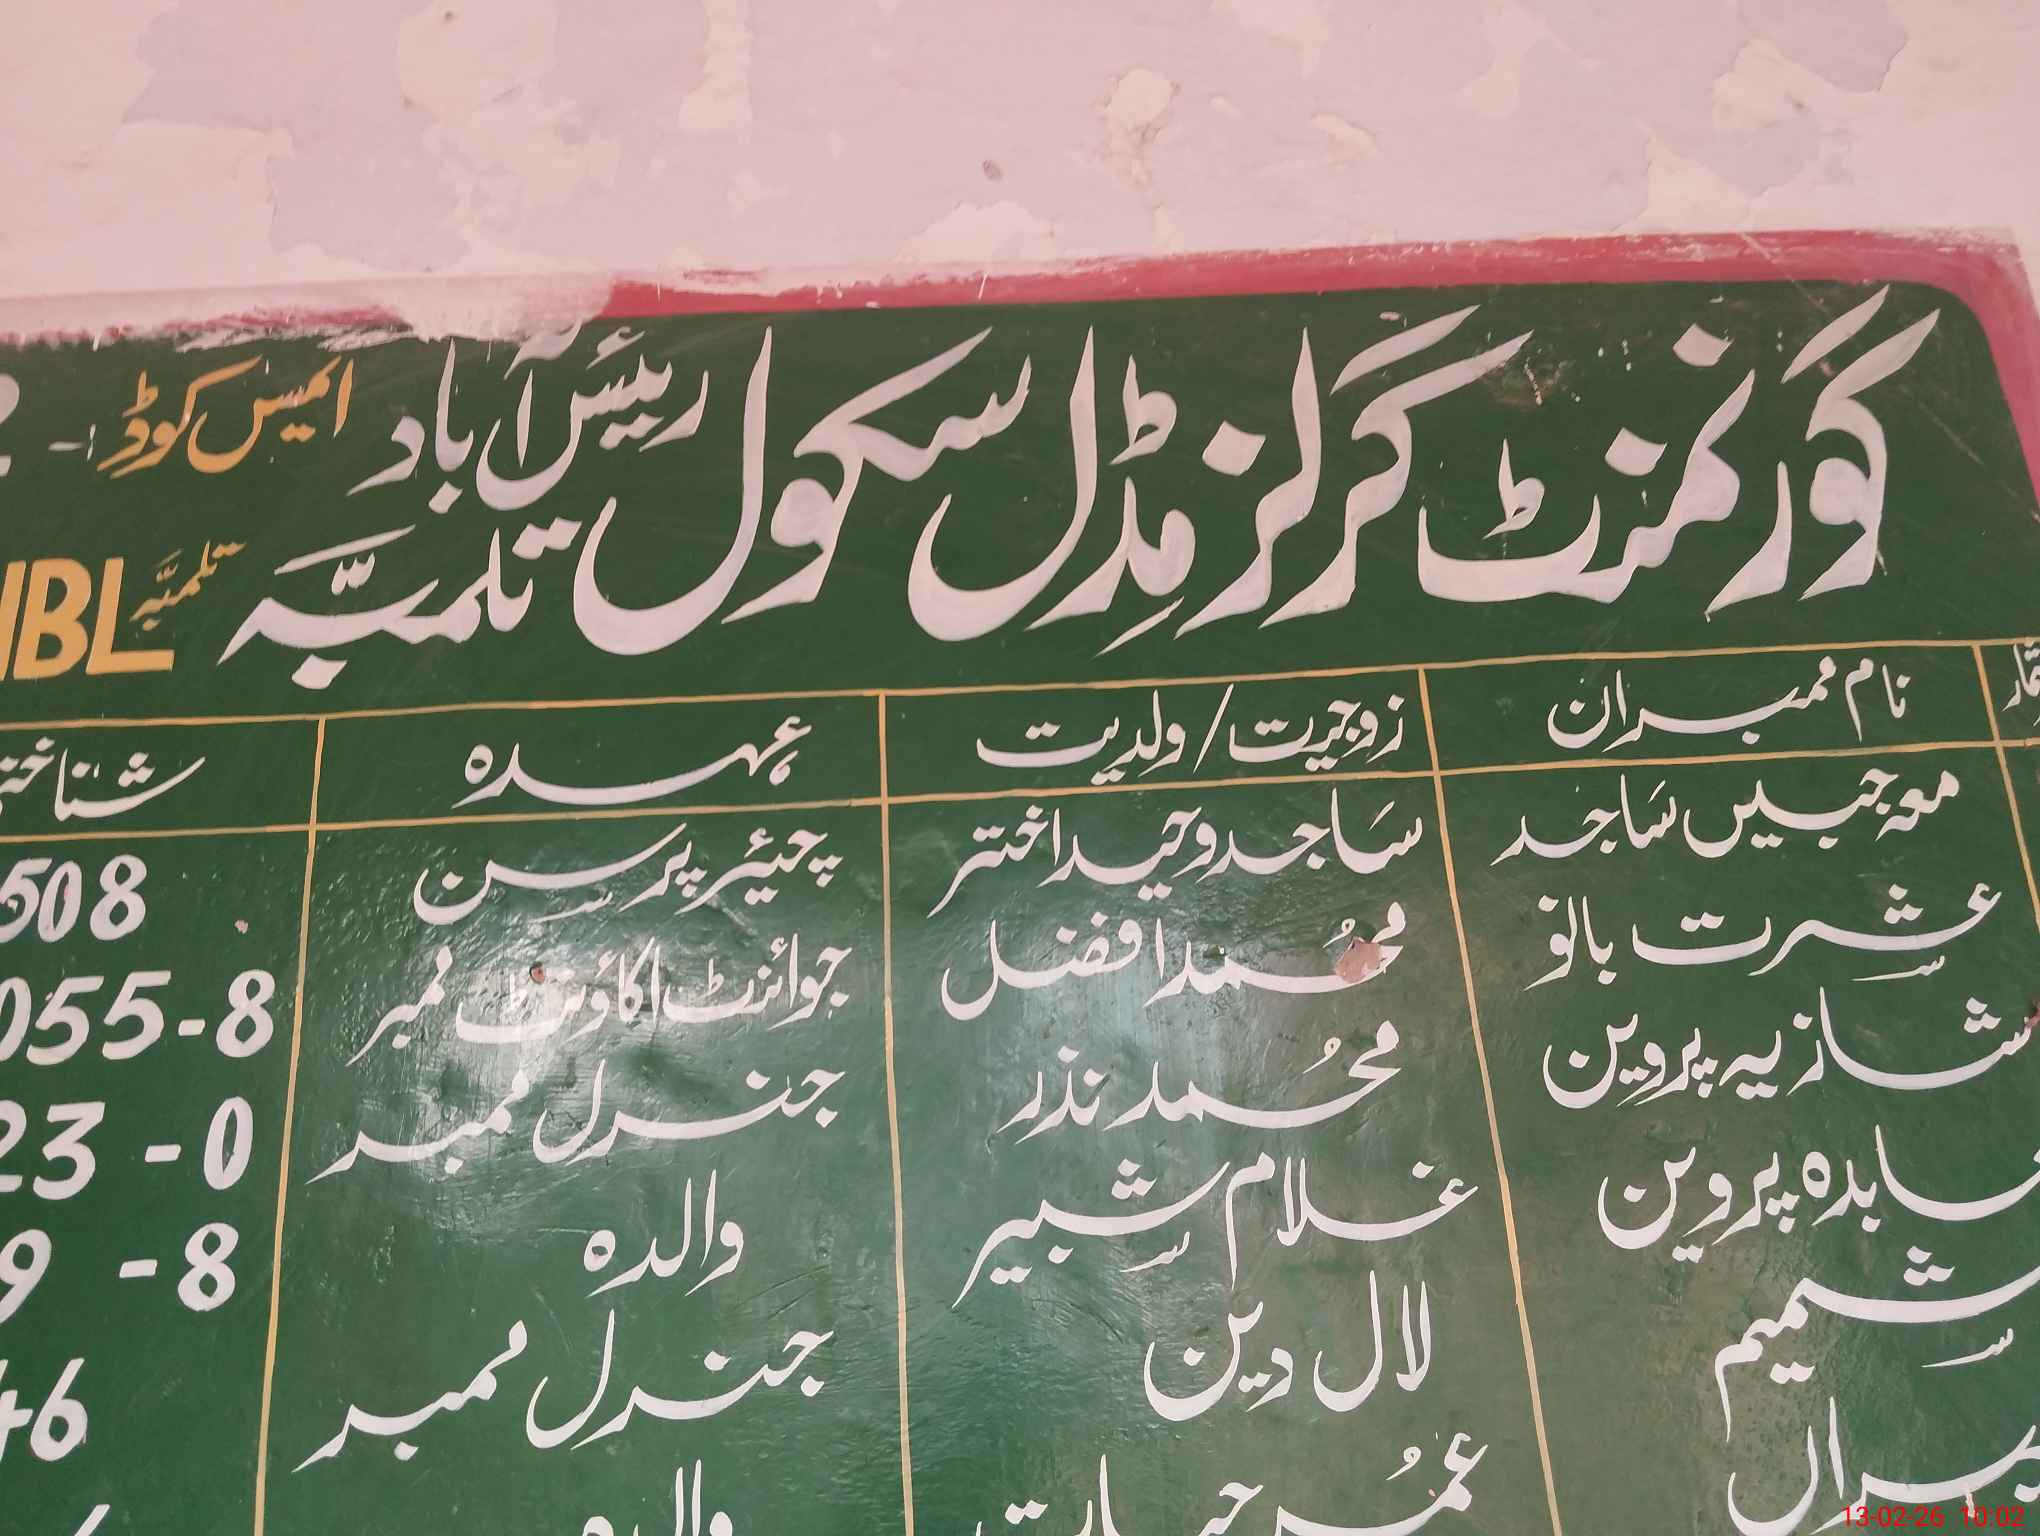 گورنمنٹ گرلز مڈل سکول رئیس آباد تلمبہ
ایمس کوڈ -
NBL تلمبہ
نام ممبران زوجیت/ولدیت عہدہ
مہ جبیں ساجد ساجد وحید اختر چیئر پرسن 508
عشرت بانو محمد افضل جوائنٹ اکاؤنٹ ممبر 055-8
شازیہ پروین محمد نذر جنرل ممبر 23-0
عابدہ پروین غلام شبیر والدہ 9-8
شمیم لال دین جنرل ممبر 46
عمر حیات والدہ
13-02-26 10:02